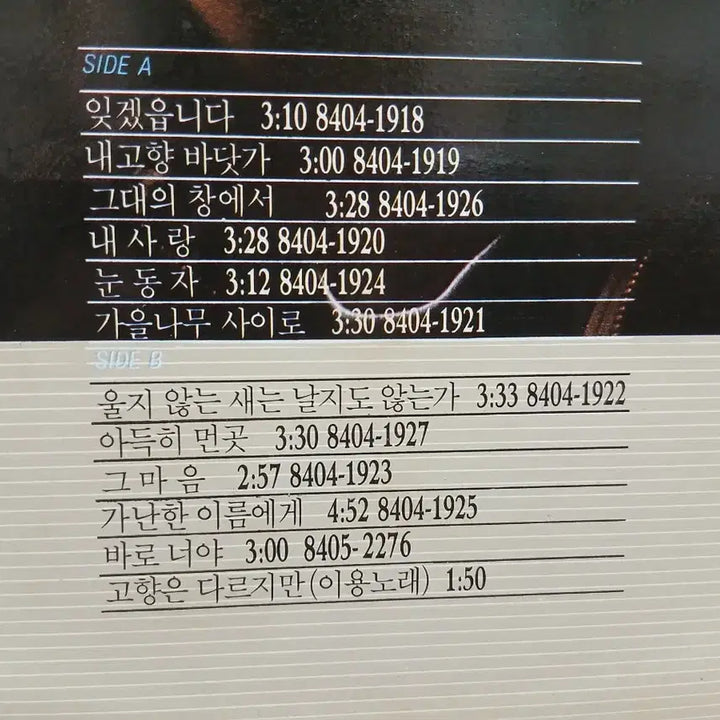 SIDE A
잊겠읍니다 3:10 8404-1918
내고향 바닷가 3:00 8404-1919
그대의 창에서 3:28 8404-1926
내 사 랑 3:28 8404-1920
눈 동 자 3:12 8404-1924
가을나무 사이로 3:30 8404-1921
SIDE B
울지 않는 새는 날지도 않는가 3:33 8404-1922
아득히 먼곳 3:30 8404-1927
그 마 음 2:57 8404-1923
가난한 이름에게 4:52 8404-1925
바로 너야 3:00 8405-2276
고향은 다르지만(이용노래) 1:50